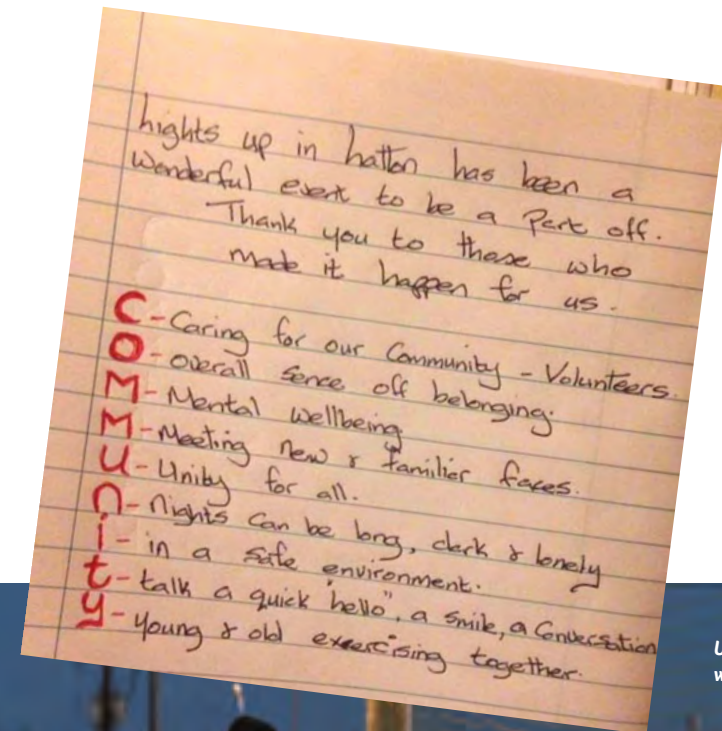 hights up in hatton has been a
wonderful event to be a Part off.
Thank you to those who
made it happen for us.
C - Caring for our Community - Volunteers.
O - overall sence off belonging.
M - Mental wellbeing
M - Meeting new & familier faces.
U - Unity for all.
n - nights can be long, dark & lonely
i - in a safe environment.
t - talk a quick "hello", a smile, a Conversation
y - young & old exercising together.